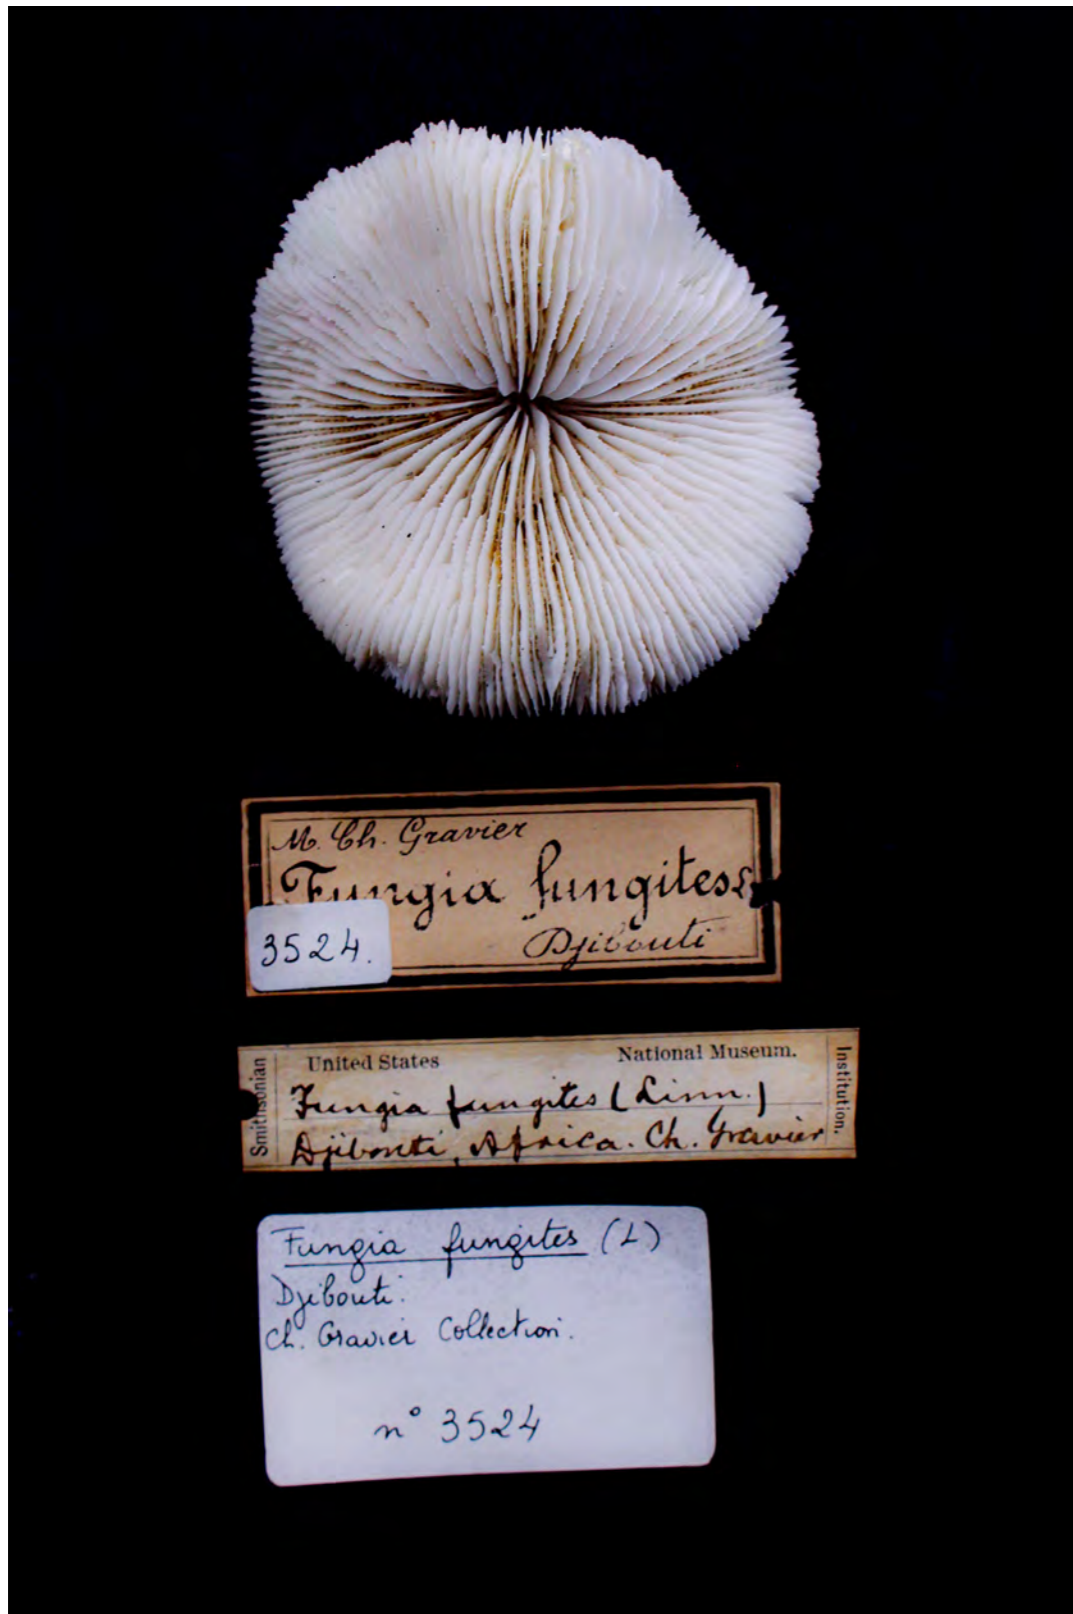 M. Ch. Gravier
Fungia fungites L
Djibouti
3524.
United States National Museum.
Smithsonian
Fungia fungites (Linn.)
Djibouti, Africa. Ch. Gravier
Institution.
Fungia fungites (L)
Djibouti.
Ch. Gravier Collection.
n° 3524